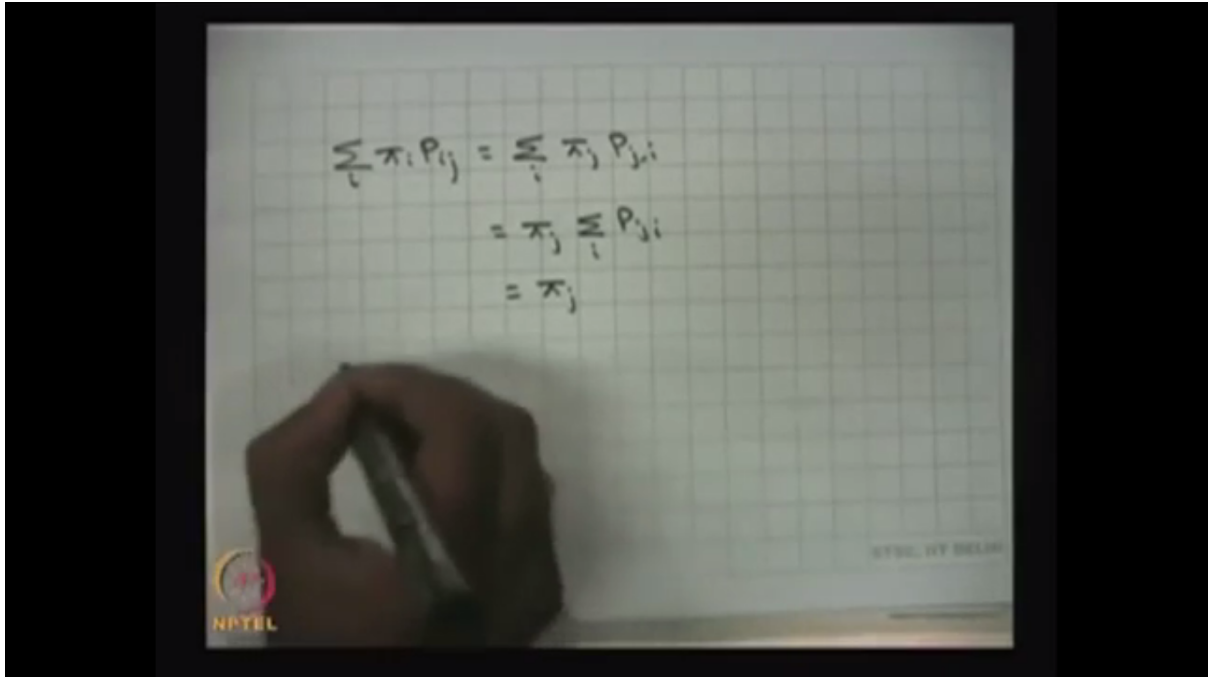 ∑_i π_i P_{ij} = ∑_i π_j P_{ji}
= π_j ∑_i P_{ji}
= π_j
ETSC, IIT DELHI
NPTEL